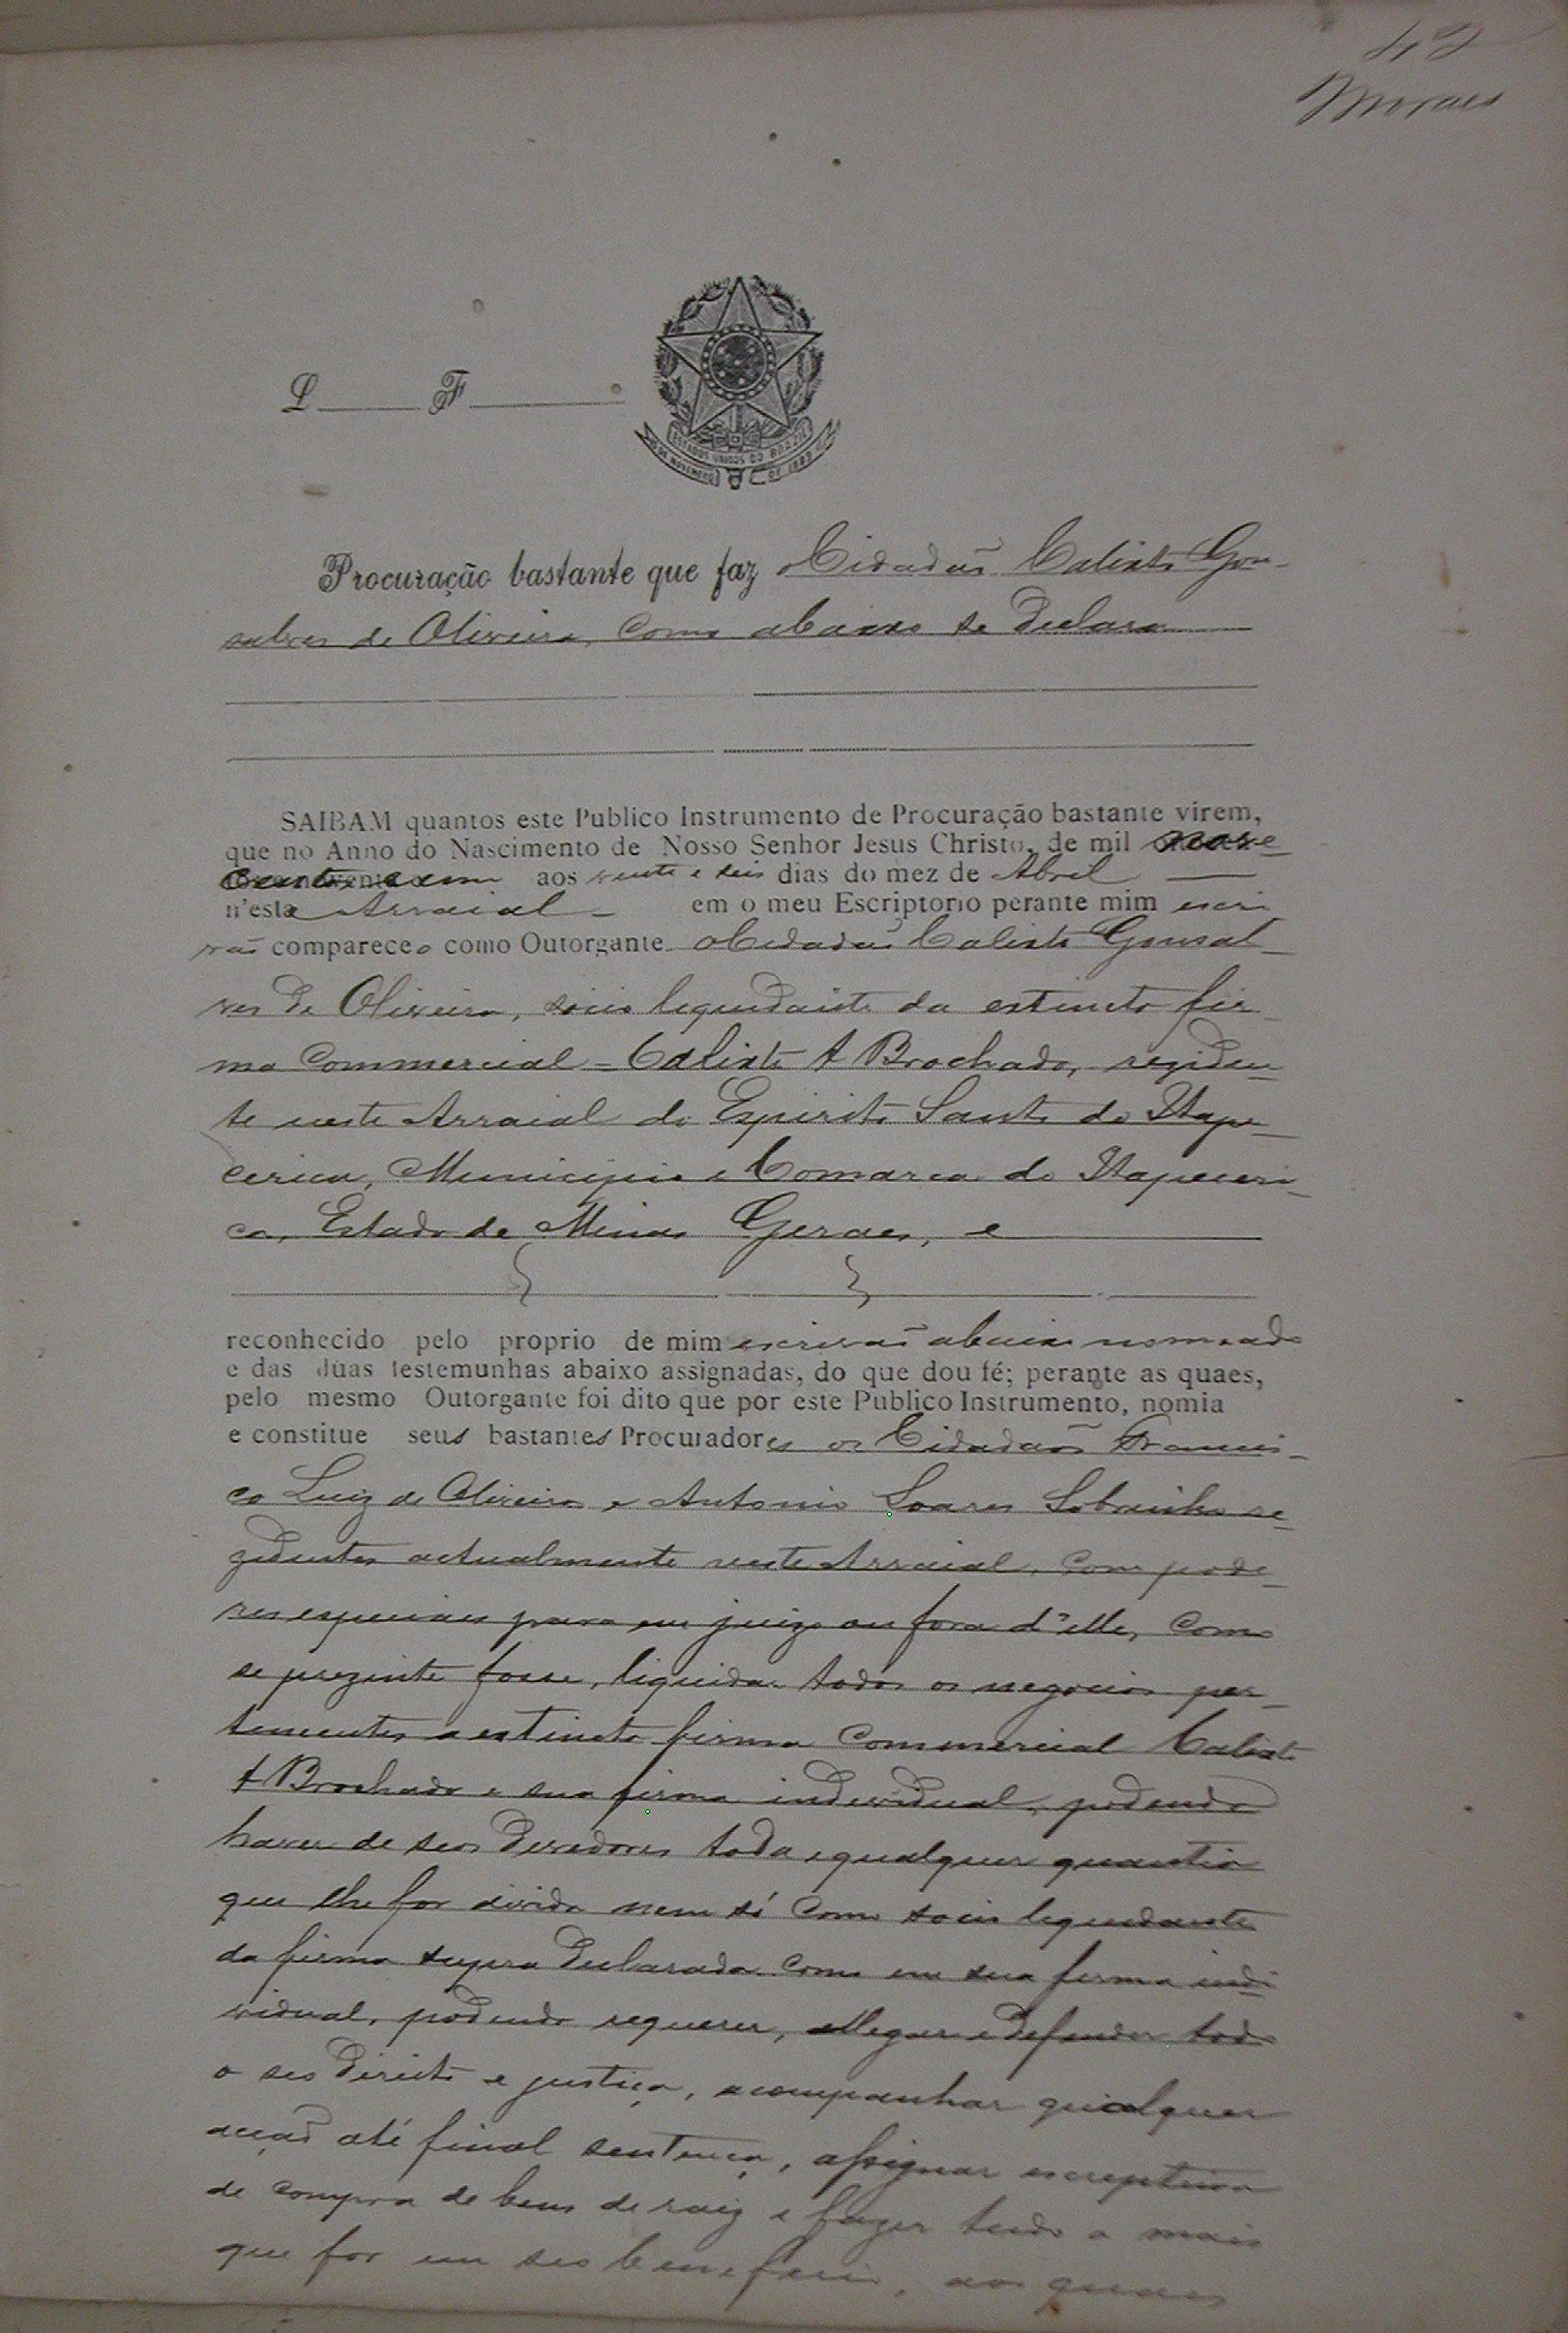 42
Moraes
L F
ESTADOS UNIDOS DO BRAZIL
15 DE NOVEMBRO DE 1889
Procuração bastante que faz o Cidadaõ Calixto Gon-
salves de Oliveira, como abaixo se declara
SAIBAM quantos este Publico Instrumento de Procuração bastante virem,
que no Anno do Nascimento de Nosso Senhor Jesus Christo, de mil nove
centos e um aos vente e seis dias do mez de Abril
n'este Arraial em o meu Escriptorio perante mim escri
vaõ compareceo como Outorgante o Cidadaõ Calixto Gonsal
ves de Oliveira, socio lequidante da estincta fir
ma Commercial = Calixto & Brochado, reziden
te neste Arraial do Espirito Santo de Itape
cerica, Municipio e Comarca de Itapeceri
ca, Estado de Minas Geraes, e
reconhecido pelo proprio de mim escrivaõ abaixo nomeado
e das duas testemunhas abaixo assignadas, do que dou fé; perante as quaes,
pelo mesmo Outorgante foi dito que por este Publico Instrumento, nomia
e constitue seus bastantes Procuradores os Cidadaõs Francis
co Luiz de Oliveira e Antonio Soares Sobrinho re
zidentes actualmente neste Arraial, com pode
res especiaes para em juizo ou fora d'elle, como
se prezente fosse, liquidar todos os negocios per
tencentes a estincta firma Commercial Calixto
& Brochado e sua firma individual, podendo
haver de seos devedores toda e qualquer quantia
que lhe for divida nem só como socio lequidante
da firma supra declarada como em sua firma indi
vidual, podendo requerer, allegar e defender todo
o seo direito e justiça, acompanhar quialquer
acçaõ até final sentença, assignar escreptura
de compra de bens de raiz e fazer tudo o mais
que for em seo beneficio, aos quaes